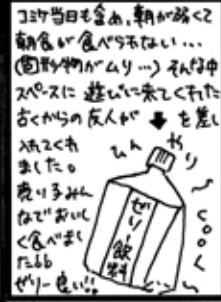 コミケ当日も含め、朝が弱くて
朝食が食べられない…
(固形物がムリ…) そんな中
スペースに遊びに来てくれた
古くからの友人が ⬇ を差し
入れてくれ
ました。
売り子みん
なでおいし
く食べまし
た
ゼリー良い!!
ひんやり
ゼリー飲料
COOL